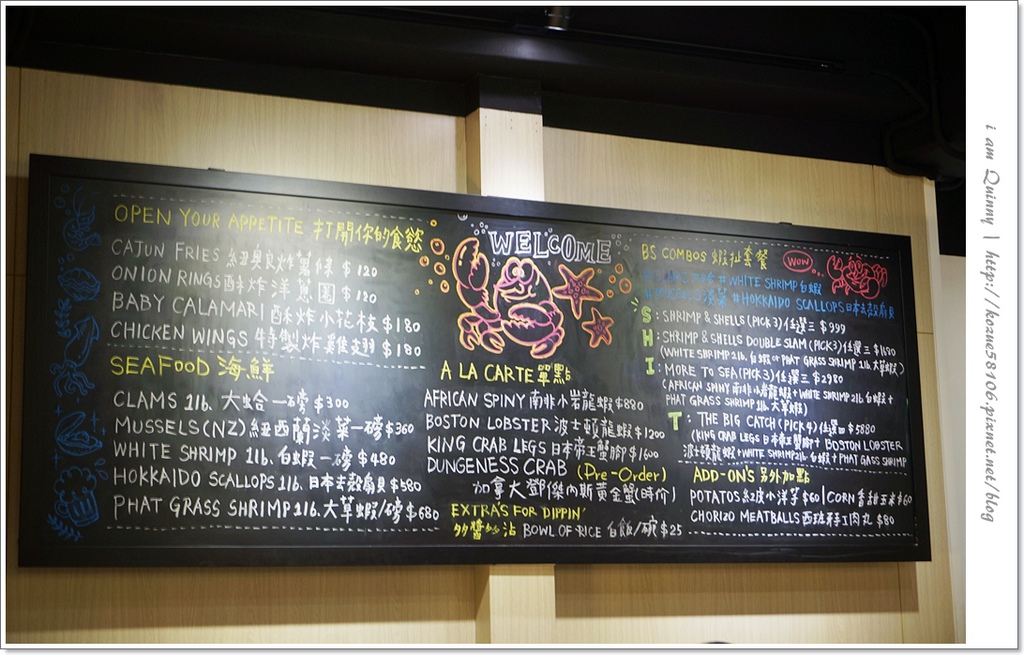 OPEN YOUR APPETITE 打開你的食慾
CAJUN FRIES 紐奧良炸薯條 $120
ONION RINGS 酥炸洋蔥圈 $120
BABY CALAMARI 酥炸小花枝 $180
CHICKEN WINGS 特製炸雞翅 $180
SEAFOOD 海鮮
CLAMS 1lb. 大蛤 一磅 $300
MUSSELS(NZ) 紐西蘭淡菜一磅 $360
WHITE SHRIMP 1lb. 白蝦 一磅 $480
HOKKAIDO SCALLOPS 1lb. 日本去殼扇貝 $580
PHAT GRASS SHRIMP 1lb. 大草蝦/磅 $680
WELCOME
A LA CARTE 單點
AFRICAN SPINY 南非小岩龍蝦 $880
BOSTON LOBSTER 波士頓龍蝦 $1200
KING CRAB LEGS 日本帝王蟹腳 $1600
DUNGENESS CRAB (Pre-Order)
加拿大鄧傑內斯黃金蟹(時價)
EXTRA'S FOR DIPPIN'
多醬妙沾 BOWL OF RICE 白飯/碗 $25
BS COMBOS 蝦扯套餐
WOW
#WHITE SHRIMP 白蝦
#HOKKAIDO SCALLOPS 日本去殼扇貝
S : SHRIMP & SHELLS (PICK 3) 任選三 $999
H : SHRIMP & SHELLS DOUBLE SLAM (PICK 3) 任選三
(WHITE SHRIMP 2lb. 白蝦 or PHAT GRASS SHRIMP 1lb. 大草蝦)
I : MORE TO SEA (PICK 3) 任選三 $2980
(AFRICAN SPINY 南非小岩龍蝦 + WHITE SHRIMP 2lb 白蝦 +
PHAT GRASS SHRIMP 1lb. 大草蝦)
T : THE BIG CATCH (PICK 4) 任選四 $5880
(KING CRAB LEGS 日本帝王蟹腳 + BOSTON LOBSTER
波士頓龍蝦 + WHITE SHRIMP 2lb 白蝦 + PHAT GRASS SHRIMP
ADD-ON'S 另外加點
POTATOS 紅皮小洋芋 $60 | CORN 香甜玉米 $60
CHORIZO MEATBALLS 西班牙肉丸 $80
i am Quinny | http://kozue58106.pixnet.net/blog